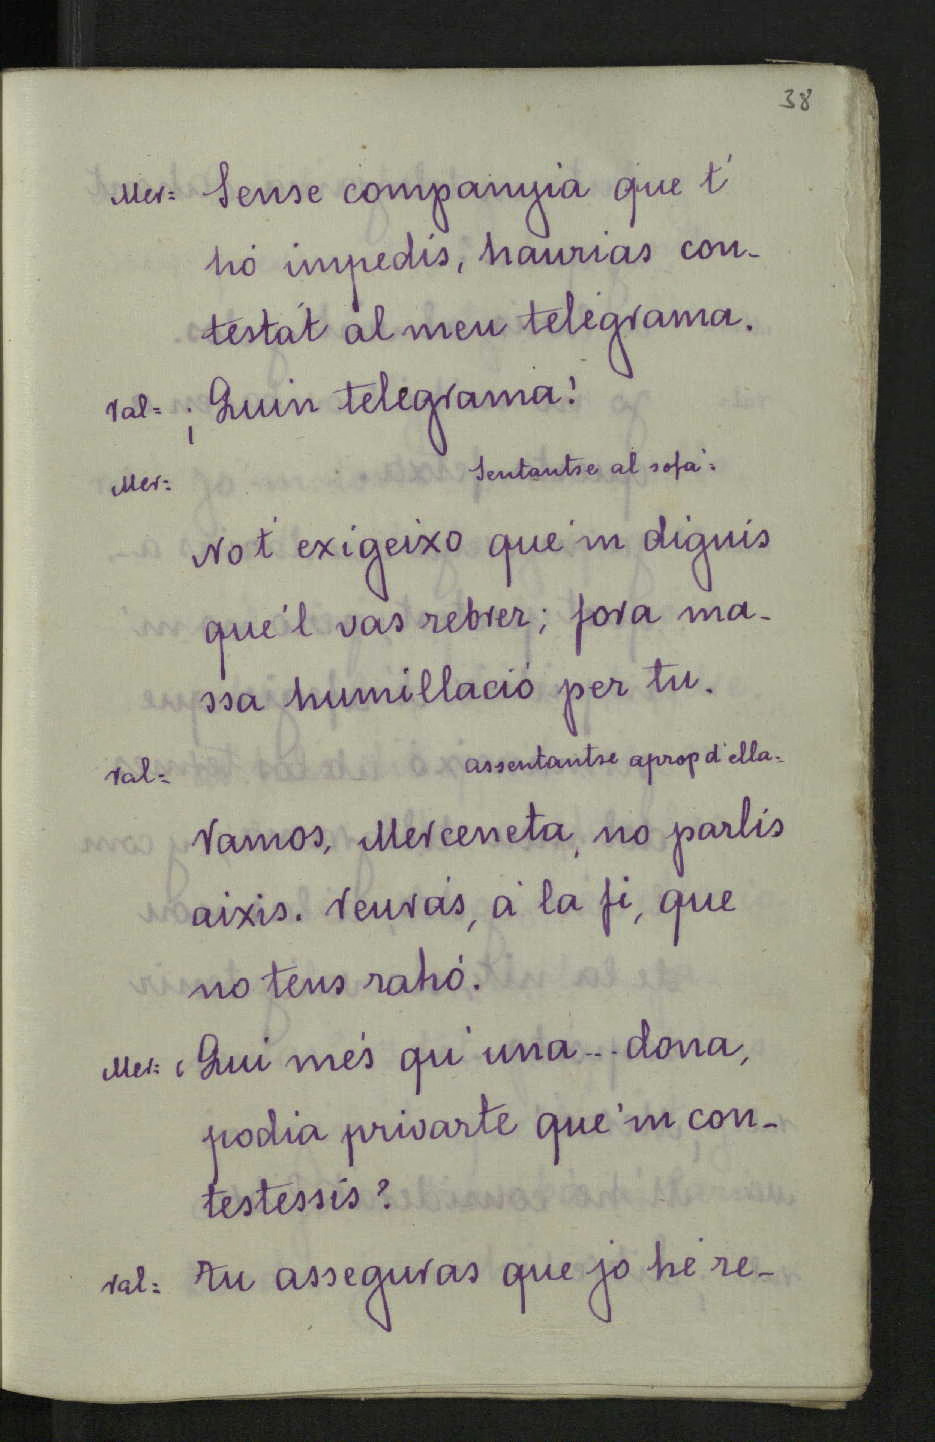 38
Mer= Sense companyia que t'
hó impedís, haurias con-
testát al meu telégrama.
Val= ¡Quin telegrama!
Sentantse al sofá=
Mer=
No t' exigeixo que'm diguis
que'l vas rebrer; fora ma-
ssa humillació per tu.
assentantse aprop d'ella=
Val=
Vamos, Merceneta, no parlis
aixis. Veurás, á la fi, que
no tens rahó.
Mer= ¿Qui més qu'una... dona,
podia privarte que'm con-
testessis?
Val= Tu asseguras que jo hé re-